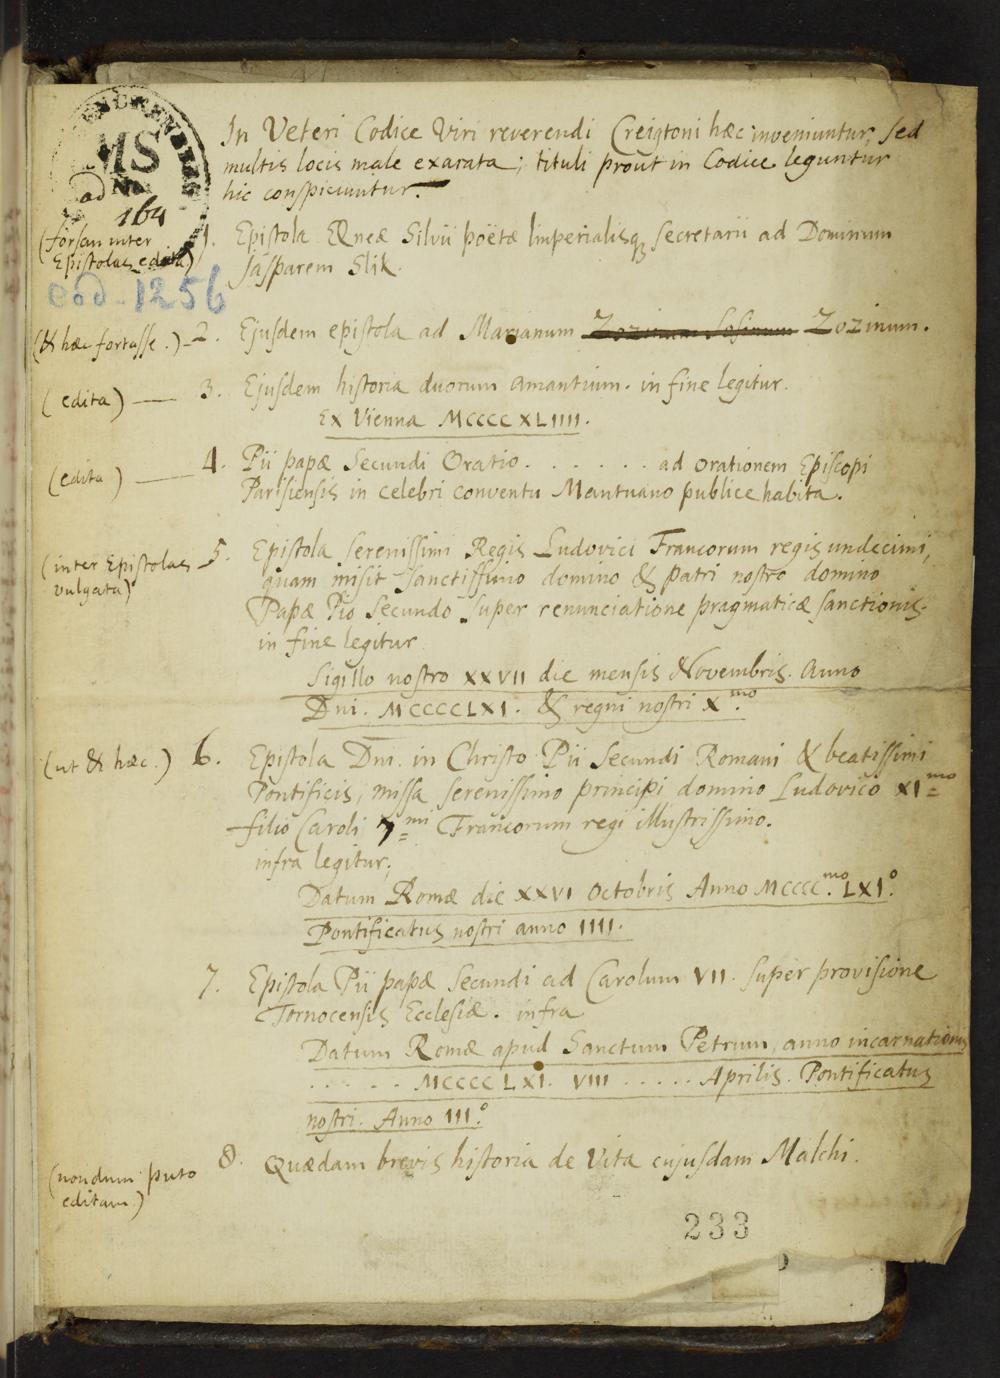 In Veteri Codice Viri reverendi Creigtoni hæc inveniuntur, sed
multis locis male exarata; tituli prout in Codice leguntur
hic conspiciuntur.
MS
ad
164
(forsan inter
Epistolas edita)
1. Epistola Æneæ Silvii poëtæ Imperialisq secretarii ad Dominum
Gasparem Slik.
cod. 1256
(& hæc fortasse.) - 2. Ejusdem epistola ad Marianum Zozinum Sosinum Zozinum.
(edita) — 3. Ejusdem historia duorum amantium. in fine legitur.
Ex Vienna MCCCC XLIIII.
(edita) — 4. Pii papæ Secundi Oratio . . . . . . ad orationem Episcopi
Parisiensis in celebri conventu Mantuano publice habita.
(inter Epistolas
vulgata)
5. Epistola serenissimi Regis Ludovici Francorum regis undecimi,
quam misit sanctissimo domino & patri nostro domino
Papæ Pio Secundo super renunciatione pragmaticæ sanctionis.
in fine legitur
Sigillo nostro XXVII die mensis Novembris. Anno
Dni. MCCCCLXI. & regni nostri X mo.
(ut & hæc.) 6. Epistola Dni. in Christo Pii Secundi Romani & beatissimi
Pontificis, missa serenissimo principi domino Ludovico XI mo
filio Caroli 7 mi Francorum regi illustrissimo.
infra legitur;
Datum Romæ die XXVI Octobris Anno MCCCC mo. LXI o.
Pontificatus nostri anno IIII.
7. Epistola Pii papæ Secundi ad Carolum VII. super provisione
Tornocensis Ecclesiæ. infra
Datum Romæ apud Sanctum Petrum, anno incarnationis
. . . . . MCCCC LXI. VIII . . . . . Aprilis. Pontificatus
nostri. Anno III o.
(nondum puto
editam.)
8. Quædam brevis historia de Vita cujusdam Malchi.
233